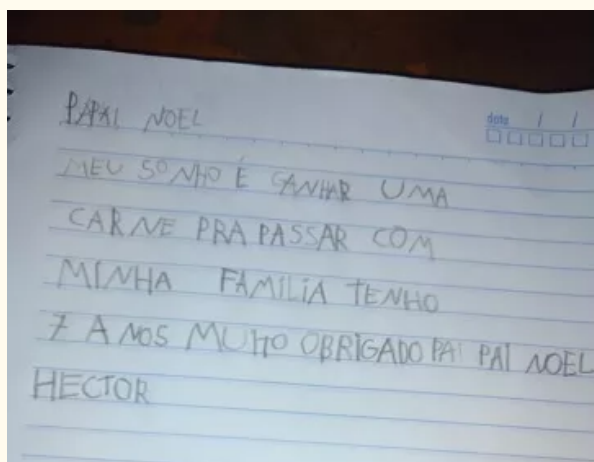 PAPAI NOEL
date / /
MEU SONHO É GANHAR UMA
CARNE PRA PASSAR COM
MINHA FAMILIA TENHO
7 ANOS MUITO OBRIGADO PAI PAI NOEL
HECTOR